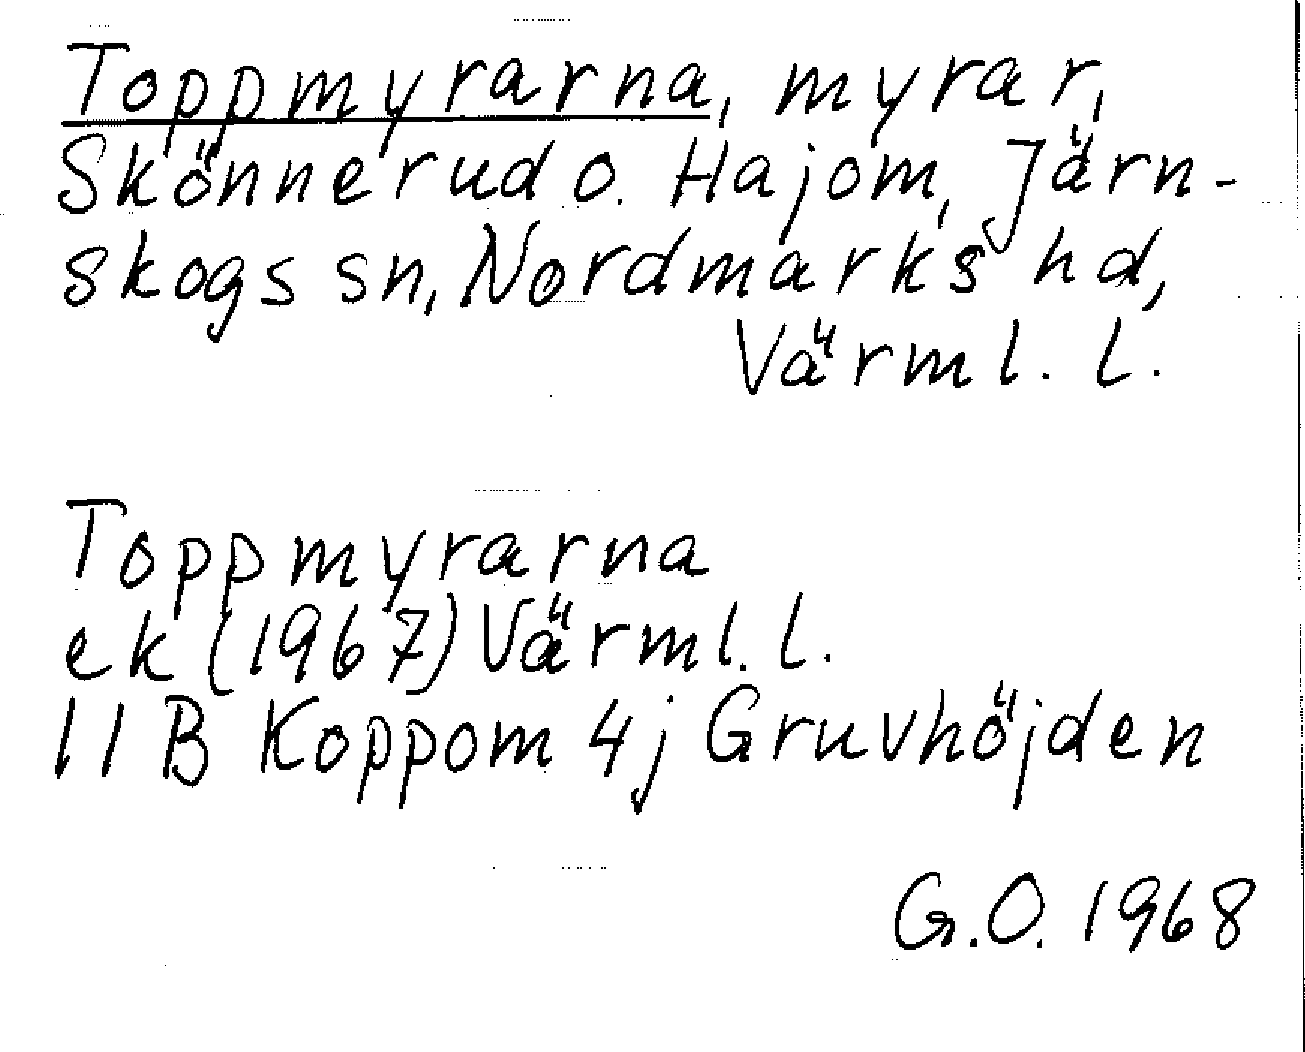 Toppmyrarna, myrar,
Skönnerud o. Hajom, Järn-
skogs sn, Nordmarks hd,
Värml. l.
Toppmyrarna
ek (1967) Värml. l.
11 B Koppom 4j Gruvhöjden
G.O. 1968